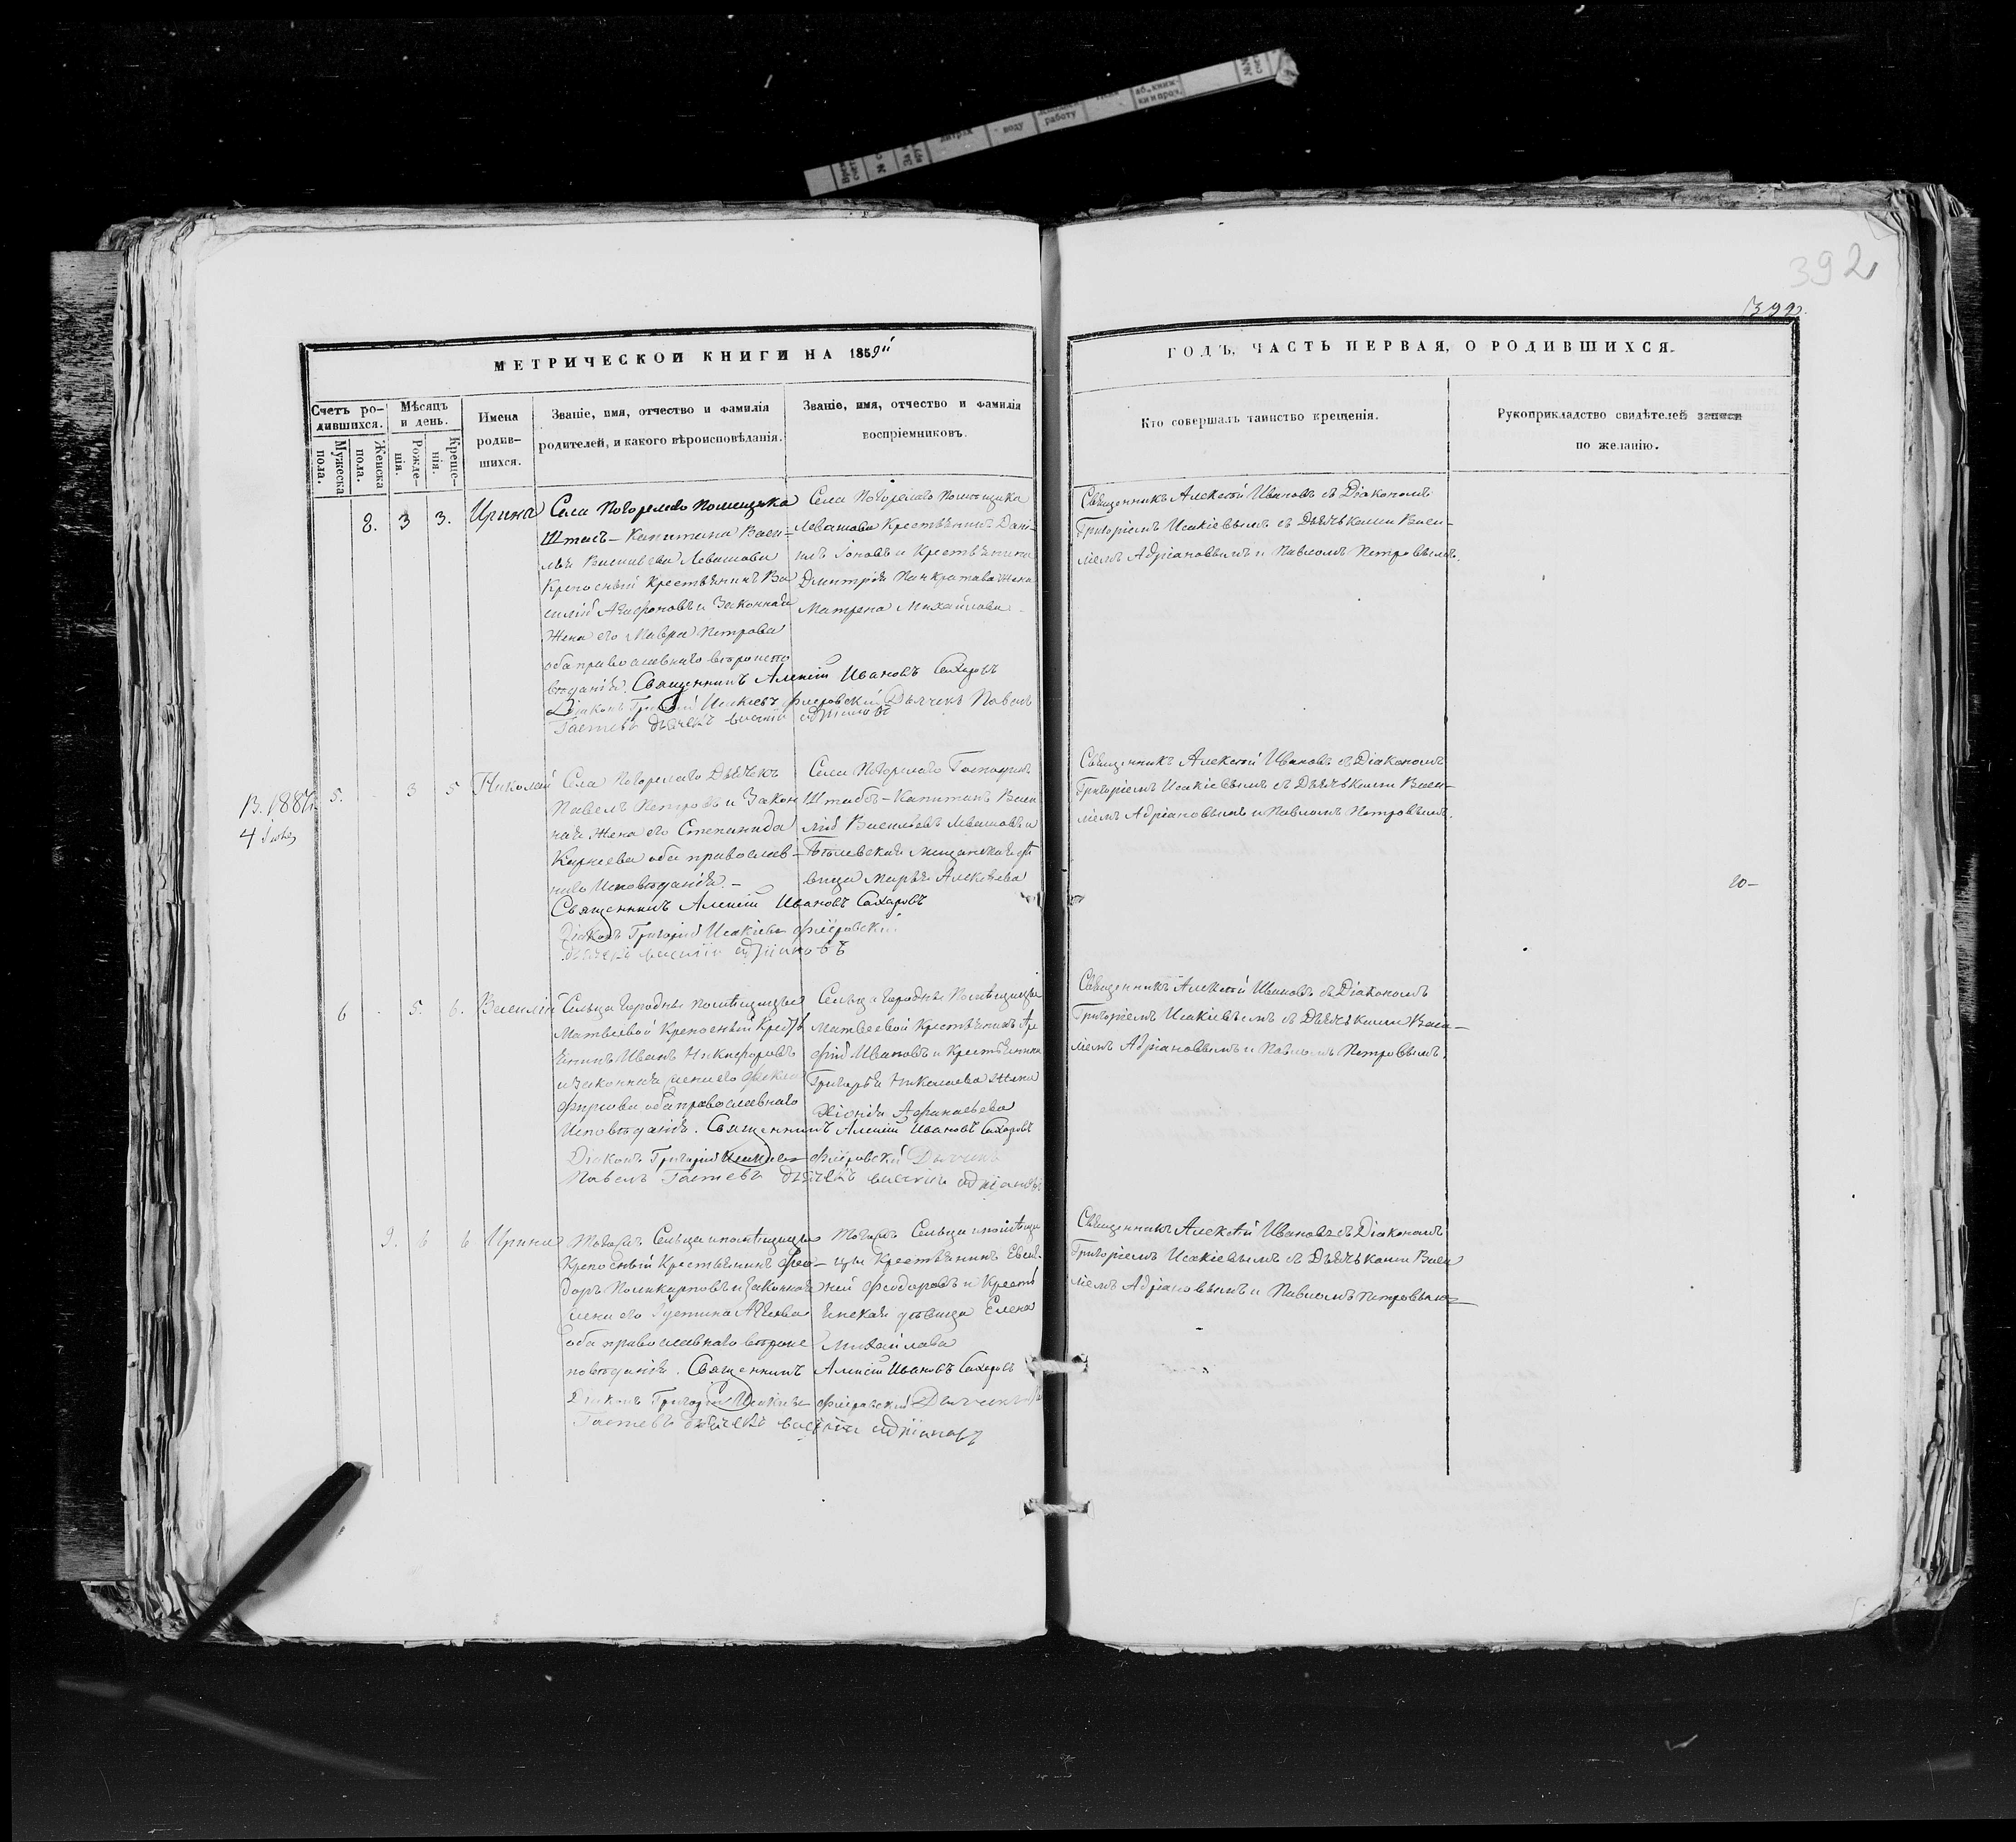 392
392.
МЕТРИЧЕСКОЙ КНИГИ НА 1859й
ГОДЪ, ЧАСТЬ ПЕРВАЯ, О РОДИВШИХСЯ.
Счетъ ро-
дившихся.
Мужеска
пола.
Женска
пола.
Мѣсяцъ
и день.
Рожде-
нія.
Креще-
нія.
Имена
родив-
шихся.
Званіе, имя, отчество и фамилія
родителей, и какого вѣроисповѣданія.
Званіе, имя, отчество и фамилія
воспріемниковъ.
Кто совершалъ таинство крещенія.
Рукоприкладство свидѣтелей записи
по желанію.
8. 3 3. Ирина
Села Погорелаго Помещика
Штабс-Капитана Васи-
лья Васильева Левашова
Крепосный Крестьянинъ Ва
силій Агафоновъ и Законная
Жена его Мавра Петрова
оба православнаго вѣроиспо
вѣданія. Священникъ Алексій Ивановъ Сахаровъ
Діаконъ Григорій Исакіевъ Дьячекъ Павелъ
Гастевъ дьячекъ василій адріановъ
Села Погорелаго Помещика
Левашова Крестьянинъ Дани-
илъ Іоновъ и Крестьянина
Дмитрія Панкратова Жена
Матрена Михайлова
Священникъ Алексѣй Ивановъ съ Діакономъ
Григоріемъ Исакіевымъ съ Дьячьками Васи-
ліемъ Адріановымъ и Павломъ Петровымъ.
5. 3 5 Николай
Села Погорелаго Дьячекъ
Павелъ Петровъ и Закон
ная Жена его Степанида
Карнеева оба православ-
наго Исповѣданія.-
Священникъ Алексій Ивановъ Сахаровъ
Діаконъ Григорій Исакіевъ
дьячекъ василій адріановъ
Села Погорелаго Господинъ
Штабсъ-Капитанъ Васи
лій Васильевъ Левашовъ и
Бѣлевская Мещанская дѣ
вица Марья Алексѣева
Священникъ Алексѣй Ивановъ съ Діакономъ
Григоріемъ Исакіевымъ съ Дьячьками Васи-
ліемъ Адріановымъ и Павломъ Петровымъ.
20-
6 5. 6. Василій
Сельца Городня Помѣщицы
Матвеевой Крепосный Кресть
янинъ Иванъ Никифоровъ
и законная жена его Фекла
Фирсова, оба православнаго
Исповѣданія. Священникъ Алексій Ивановъ Сахаровъ
Діаконъ Григорій Исакіевъ Дьячекъ
Павелъ Гастевъ дьячекъ василій адріановъ
Сельца Городня Помѣщицы
Матвеевой Крестьянинъ
Ивановъ и Крестьянина
Григорья Николаева жена
Хіонія Афанасьева
Священникъ Алексѣй Ивановъ съ Діакономъ
Григоріемъ Исакіевымъ съ Дьячьками Васи-
ліемъ Адріановымъ и Павломъ Петровымъ.
9. 6 6 Ирина
Тогожъ Сельца и помѣщицы
Крепосный Крестьянинъ Фео-
доръ Поликарповъ и законная
жена его Устина
оба православнаго вѣроис
повѣданія. Священникъ Алексій Ивановъ Сахаровъ
Діаконъ Григорій Исакіевъ Дьячекъ
Гастевъ дьячекъ василій адріановъ
Тогожъ Сельца и помѣщи
цы Крестьянинъ Евсиг-
ней Феодоровъ и Кресть
янская дѣвица Елена
Михайлова
Священникъ Алексѣй Ивановъ съ Діакономъ
Григоріемъ Исакіевымъ съ Дьячьками Васи
ліемъ Адріановымъ и Павломъ Петровымъ
работу
воду